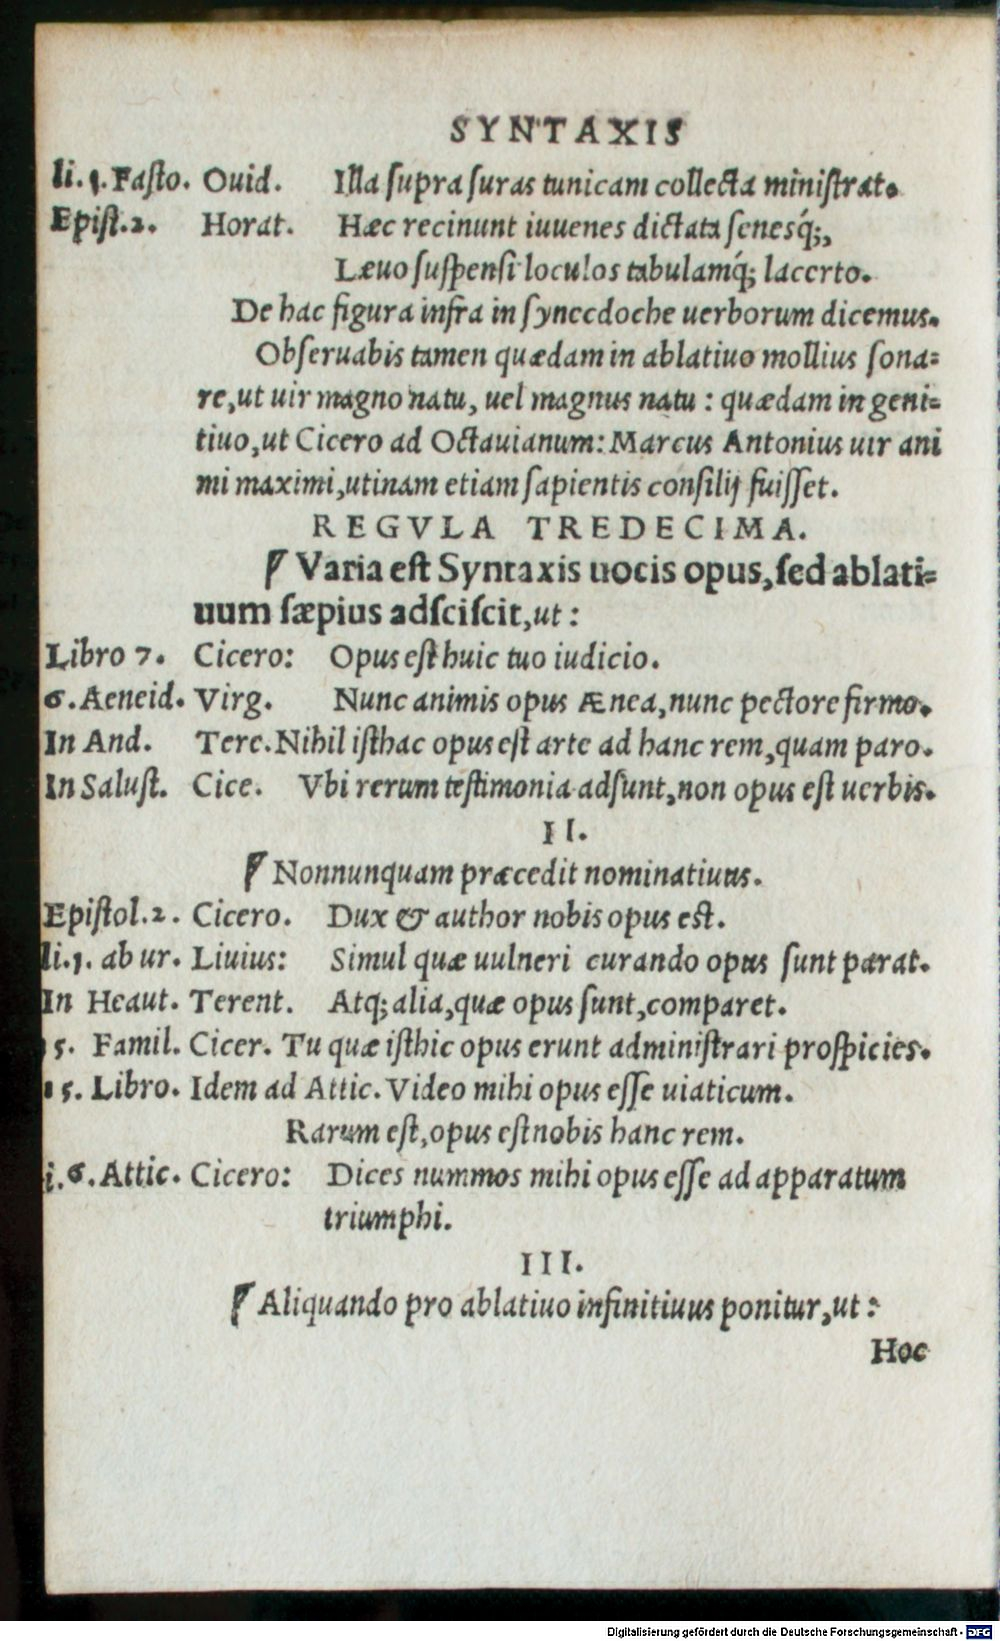 SYNTAXIS
li. 1. Fasto. Ouid. Illa supra suras tunicam collecta ministrat.
Epist. 2. Horat. Hæc recinunt iuuenes dictata senesq́;,
Læuo suspensi loculos tabulamq́; lacerto.
De hac figura infra in synecdoche uerborum dicemus.
Obseruabis tamen quædam in ablatiuo mollius sona=
re, ut uir magno natu, uel magnus natu : quædam in geni=
tiuo, ut Cicero ad Octauianum: Marcus Antonius uir ani
mi maximi, utinam etiam sapientis consilij fuisset.
REGVLA TREDECIMA.
¶ Varia est Syntaxis uocis opus, sed ablati=
uum sæpius adsciscit, ut :
Libro 7. Cicero: Opus est huic tuo iudicio.
6. Aeneid. Virg. Nunc animis opus Ænea, nunc pectore firmo.
In And. Tere. Nihil isthac opus est arte ad hanc rem, quam paro.
In Salust. Cice. Vbi rerum testimonia adsunt, non opus est uerbis.
II.
¶ Nonnunquam præcedit nominatiuus.
Epistol. 2. Cicero. Dux & author nobis opus est.
li. 1. ab ur. Liuius: Simul quæ uulneri curando opus sunt parat.
In Heaut. Terent. Atq; alia, quæ opus sunt, comparet.
15. Famil. Cicer. Tu quæ isthic opus erunt administrari prospicies.
15. Libro. Idem ad Attic. Video mihi opus esse uiaticum.
Rarum est, opus est nobis hanc rem.
i. 6. Attic. Cicero: Dices nummos mihi opus esse ad apparatum
triumphi.
III.
¶ Aliquando pro ablatiuo infinitiuus ponitur, ut :
Hoc
Digitalisierung gefördert durch die Deutsche Forschungsgemeinschaft - DFG